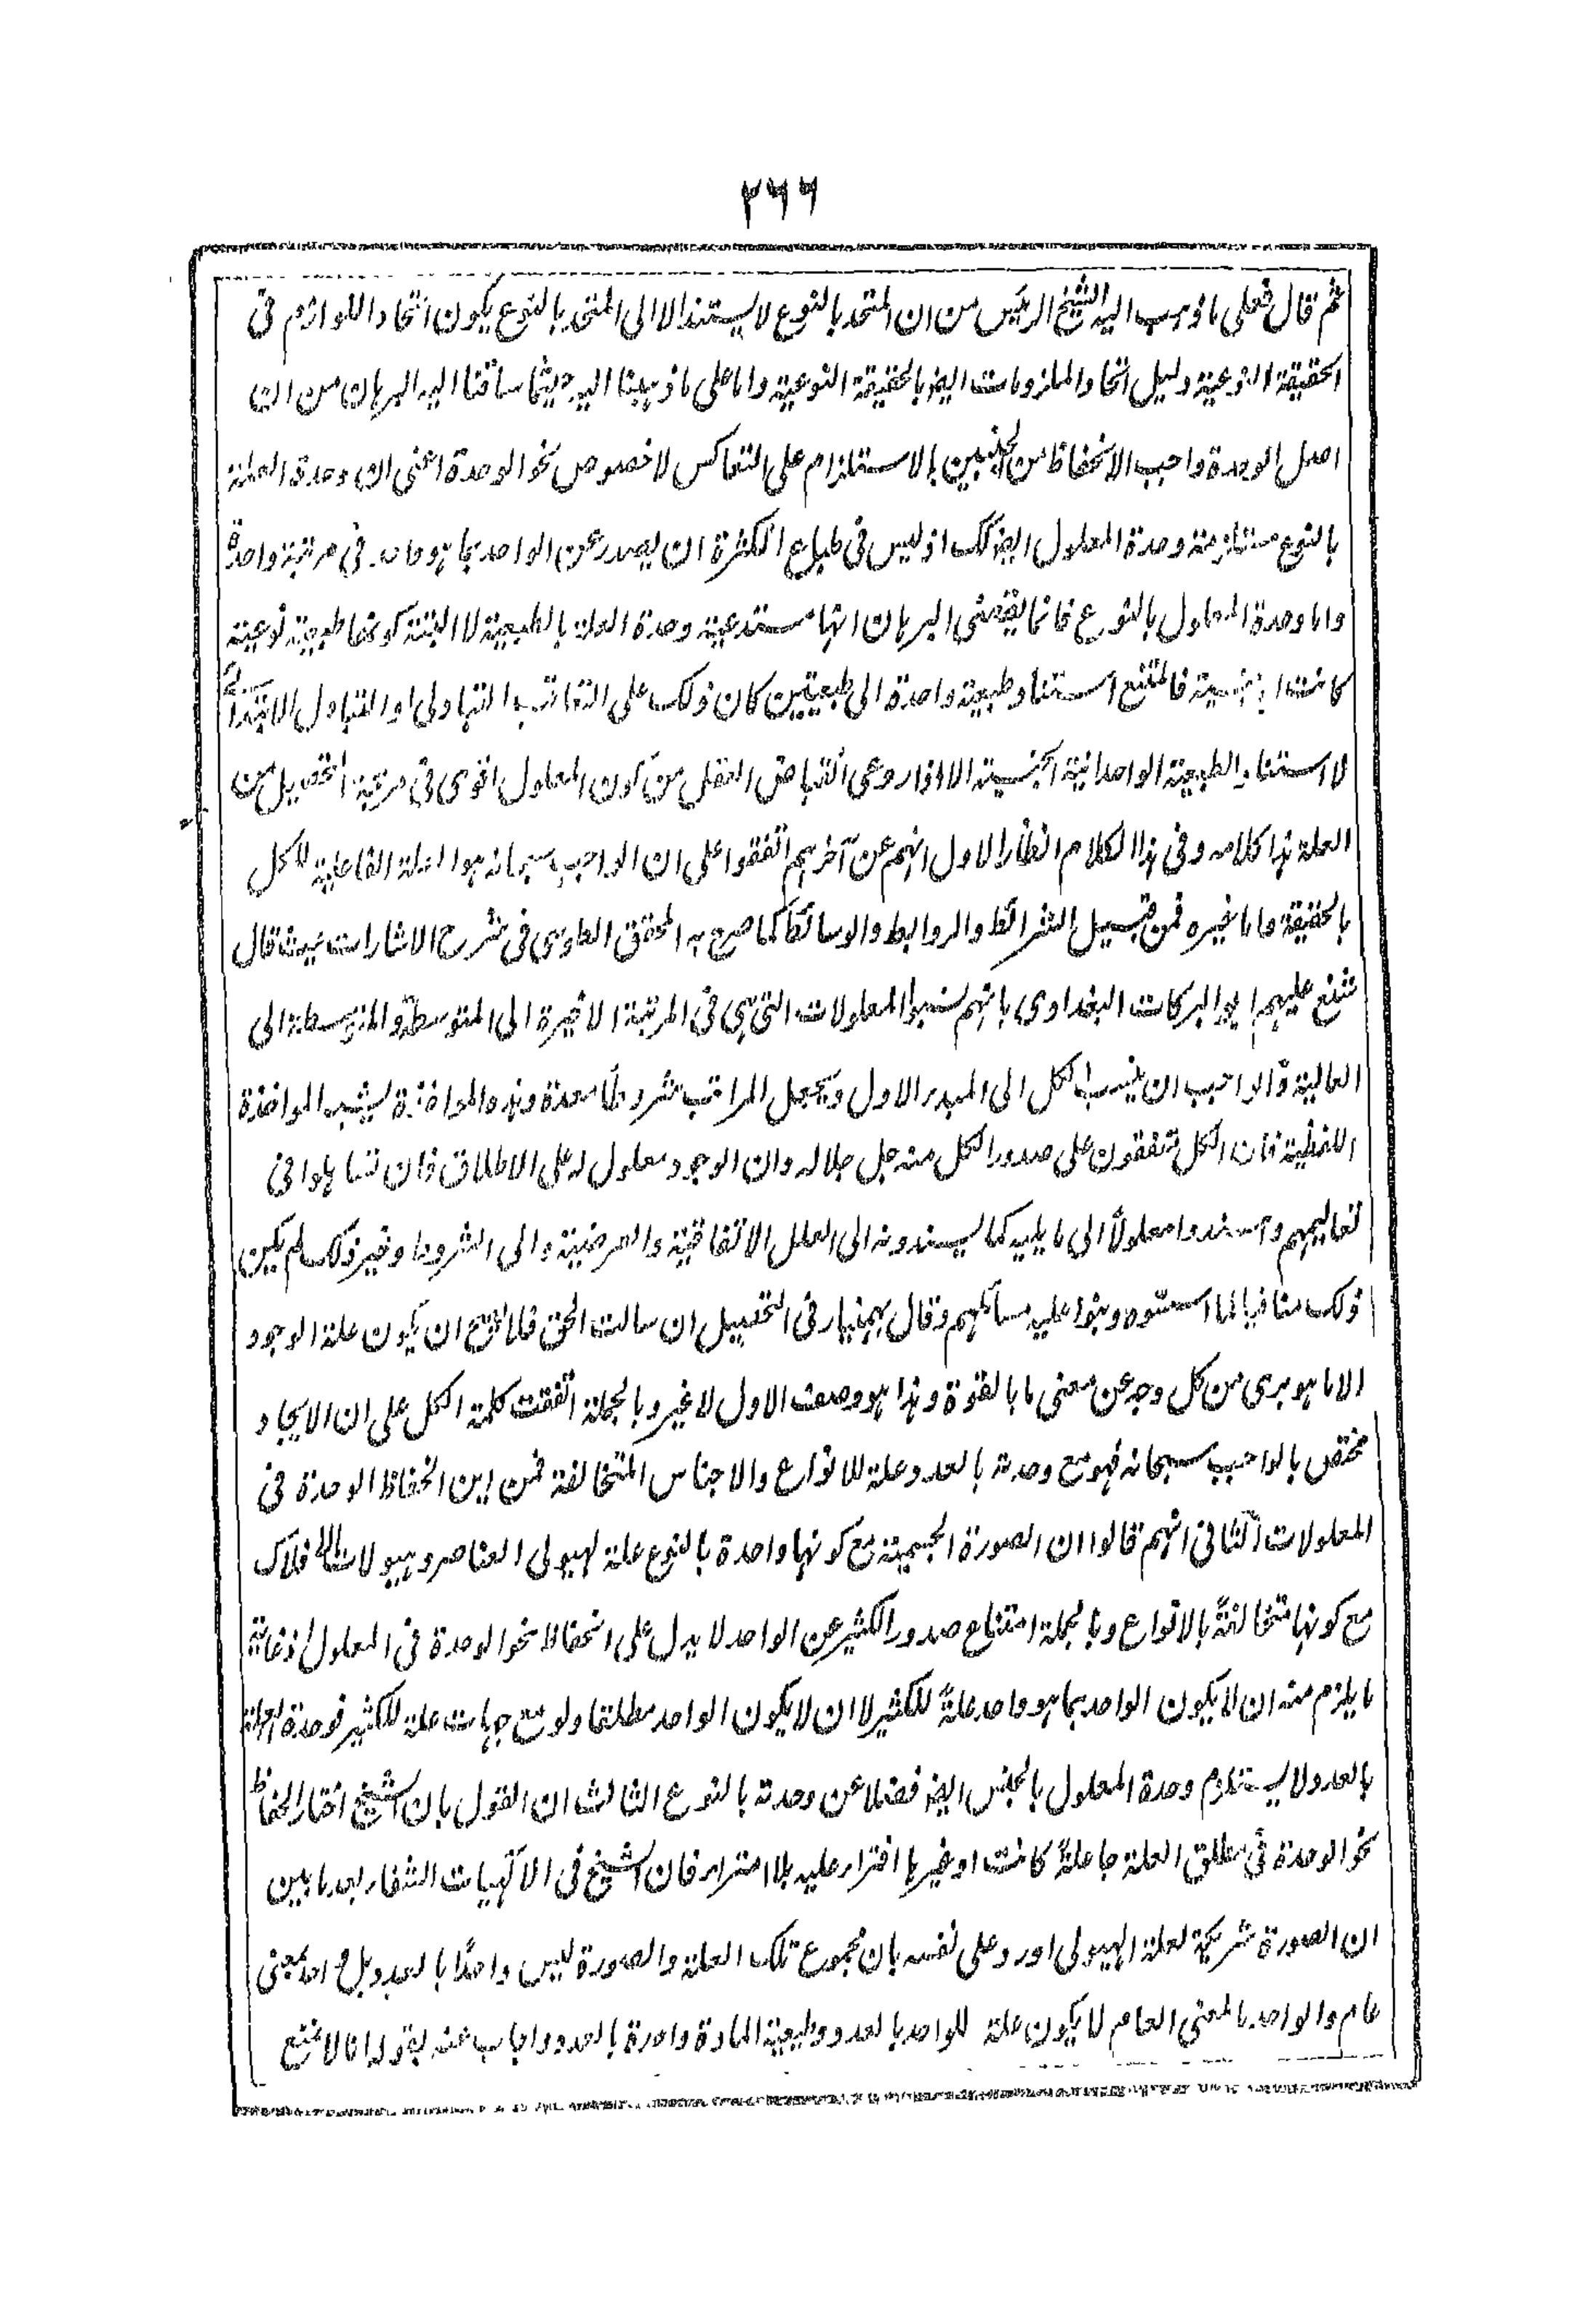 ٢٦٦
ثم قال فعلى ما ذهب اليه الشيخ الرئيس من ان المتحد بالنوع لا يستند الا الى المتحد بالنوع يكون اتحاد اللوازم فى
الحقيقة النوعية دليل اتحاد الملزومات ايضا بالحقيقة النوعية واما على ما ذهبنا اليه حيثما ساقنا اليه البرهان من ان
اصل الوحدة واجب الانحفاظ من الجنبين بالاستلزام على التعاكس لا خصوص نحو الوحدة اعنى ان وحدة العلة
بالنوع مستلزمة وحدة المعلول ايضا كك اذ ليس فى طباع الكثرة ان يصدر عن الواحد بما هو واحد فى مرتبة واحدة
واما وحدة المعلول بالنوع فانما يقتضى البرهان انها مستدعية وحدة العلة بالطبيعة لا البتة كونها طبيعة نوعية
كانت او جنسية فالممتنع استناد طبيعة واحدة الى طبيعتين كان ذلك على التعاقب التبادلى او التبادل الابتدائى
لا استناد الطبيعة الواحدانية الجنسية الا اذا روعى انقباض العقل من كون المعلول اقوى فى مرتبة التحصيل من
العلة هذا كلامه وفى هذا الكلام انظار الاول انهم عن آخرهم اتفقوا على ان الواجب سبحانه هو العلة الفاعلية للكل
بالحقيقة واما غيره فمن قبيل الشرائط والروابط والوسائط كما صرح به المحقق الطوسى فى شرح الاشارات حيث قال
شنع عليهم ابو البركات البغدادى بانهم نسبوا المعلولات التى هى فى المرتبة الاخيرة الى المتوسطة والمتوسطة الى
العالية والواجب ان ينسب الكل الى المبدء الاول ويجعل المراتب شروطا معدة وهذه المواخذة يشبه المواخذة
اللفظية فان الكل متفقون على صدور الكل منه جل جلاله وان الوجود معلول له على الاطلاق فان تساهلوا فى
تعاليمهم واسندوا معلولا الى ما يليه كما يسندونه الى العلل الاتفاقية والعرضية والى الشروط وغير ذلك لم يكن
ذلك منافيا لما اسسوه وبنوا عليه مسائلهم وقال بهمنيار فى التحصيل ان سالت الحق فلا يصح ان يكون علة الوجود
الا ما هو برى من كل وجه عن معنى ما بالقوة وهذا هو وصف الاول لا غير وبالجملة اتفقت كلمة الكل على ان الايجاد
مختص بالواجب سبحانه فهو مع وحدته بالعدد علة للانواع والاجناس المتخالفة فمن اين انحفاظ الوحدة فى
المعلولات الثانى انهم قالوا ان الصورة الجسمية مع كونها واحدة بالنوع علة لهيولى العناصر وهيولات الافلاك
مع كونها متخالفة بالانواع وبالجملة امتناع صدور الكثير عن الواحد لا يدل على انحفاظ نحو الوحدة فى المعلول اذ غاية
ما يلزم منه ان لا يكون الواحد بما هو واحد علة للكثير لا ان لا يكون الواحد مطلقا ولو مع جهات علة للكثير فوحدة العلة
بالعدد لا يستلزم وحدة المعلول بالجنس ايضا فضلا عن وحدته بالنوع الثالث ان القول بان الشيخ اختار انحفاظ
نحو الوحدة فى مطلق العلة جاعلة كانت او غيرها افتراء عليه بلا امتراء فان الشيخ فى الآلهيات الشفا بعد ما بين
ان الصورة شريكة لعلة الهيولى اورد على نفسه بان مجموع تلك العلة والصورة ليس واحدًا بالعدد بل واحد بمعنى
عام والواحد بالمعنى العام لا يكون علة للواحد بالعدد وطبيعة المادة واحدة بالعدد واجاب عنه بقوله انا لا نمنع